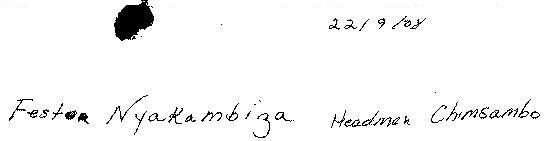 22/9/08
Feston Nyakambiza Headman Chimsambo